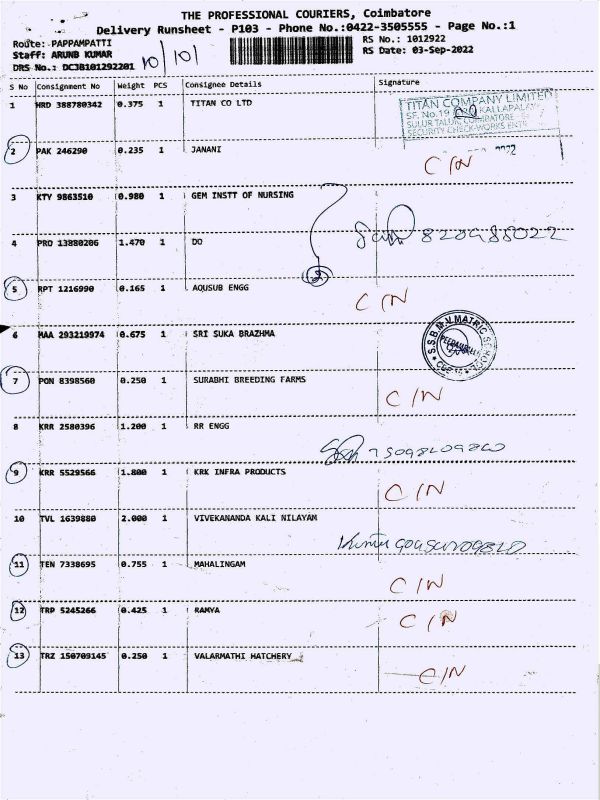 THE PROFESSIONAL COURIERS, Coimbatore
Delivery Runsheet - P103 - Phone No.:0422-3505555 - Page No.:1
Route: PAPPAMPATTI
RS No.: 1012922
Staff: ARUNB KUMAR
RS Date: 03-Sep-2022
DRS No.: DC3B101292201
10/10/
S No Consignment No Weight PCS Consignee Details Signature
1 HRD 388780342 0.375 1 TITAN CO LTD
TITAN COMPANY LIMITED
SF. No.19 KALLAPALAYAM
SULUR TALUK, COIMBATORE
SECURITY CHECK-WORKS
2 PAK 246290 0.235 1 JANANI
C/N
3 KTY 9863510 0.980 1 GEM INSTT OF NURSING
4 PRO 13880206 1.470 1 DO
5 RPT 1216990 0.165 1 AQUSUB ENGG
C/N
6 MAA 293219974 0.675 1 SRI SUKA BRAZHMA
S.S.B.M.V.MATRIC SCHOOL
7 PON 8398560 0.250 1 SURABHI BREEDING FARMS
C/N
8 KRR 2580396 1.200 1 RR ENGG
9 KRR 5529566 1.800 1 KRK INFRA PRODUCTS
C/N
10 TVL 1639880 2.000 1 VIVEKANANDA KALI NILAYAM
11 TEN 7338695 0.755 1 MAHALINGAM
C/N
12 TRP 5245266 0.425 1 RAMYA
C/N
13 TRZ 150709145 0.250 1 VALARMATHI HATCHERY
C/N